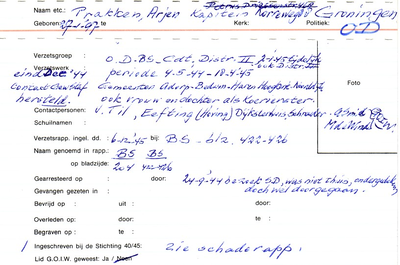 Naam etc.: Prakken, Arjen Kapitein Korreweg Groningen
Geboren: 27-5-07 te Kerk: Politiek: O.D.
Verzetsgroep O.D. BS. Cdt. Distr. II
Verzetswerk periode 4.5.44 - 18.4.45
eind Dec '44 Gemeenten Adorp-Bedum-Haren
contact hersteld. ook vrouw en dochter als Koerierster.
Contactpersonen: v. Til, Eefting (Hering) Dijksterhuis, Schroeder
Schuilnamen :
Foto
Verzetsrapp. ingel. dd. : 6-12-45 bij: BS - blz. 422-426
Naam genoemd in rapp.: BS BS
op bladzijde: 204 422-426
Gearresteerd op : door: 24-9-'44 bezoek SD, was niet thuis, ondergedoken
Gevangen gezeten in : doch wel doorgegaan.
Bevrijd op : uit : door:
Overleden op: door: te :
Begraven op : te :
Ingeschreven bij de Stichting 40/45: zie schaderapp.
Lid G.O.I.W. geweest: Ja / Neen